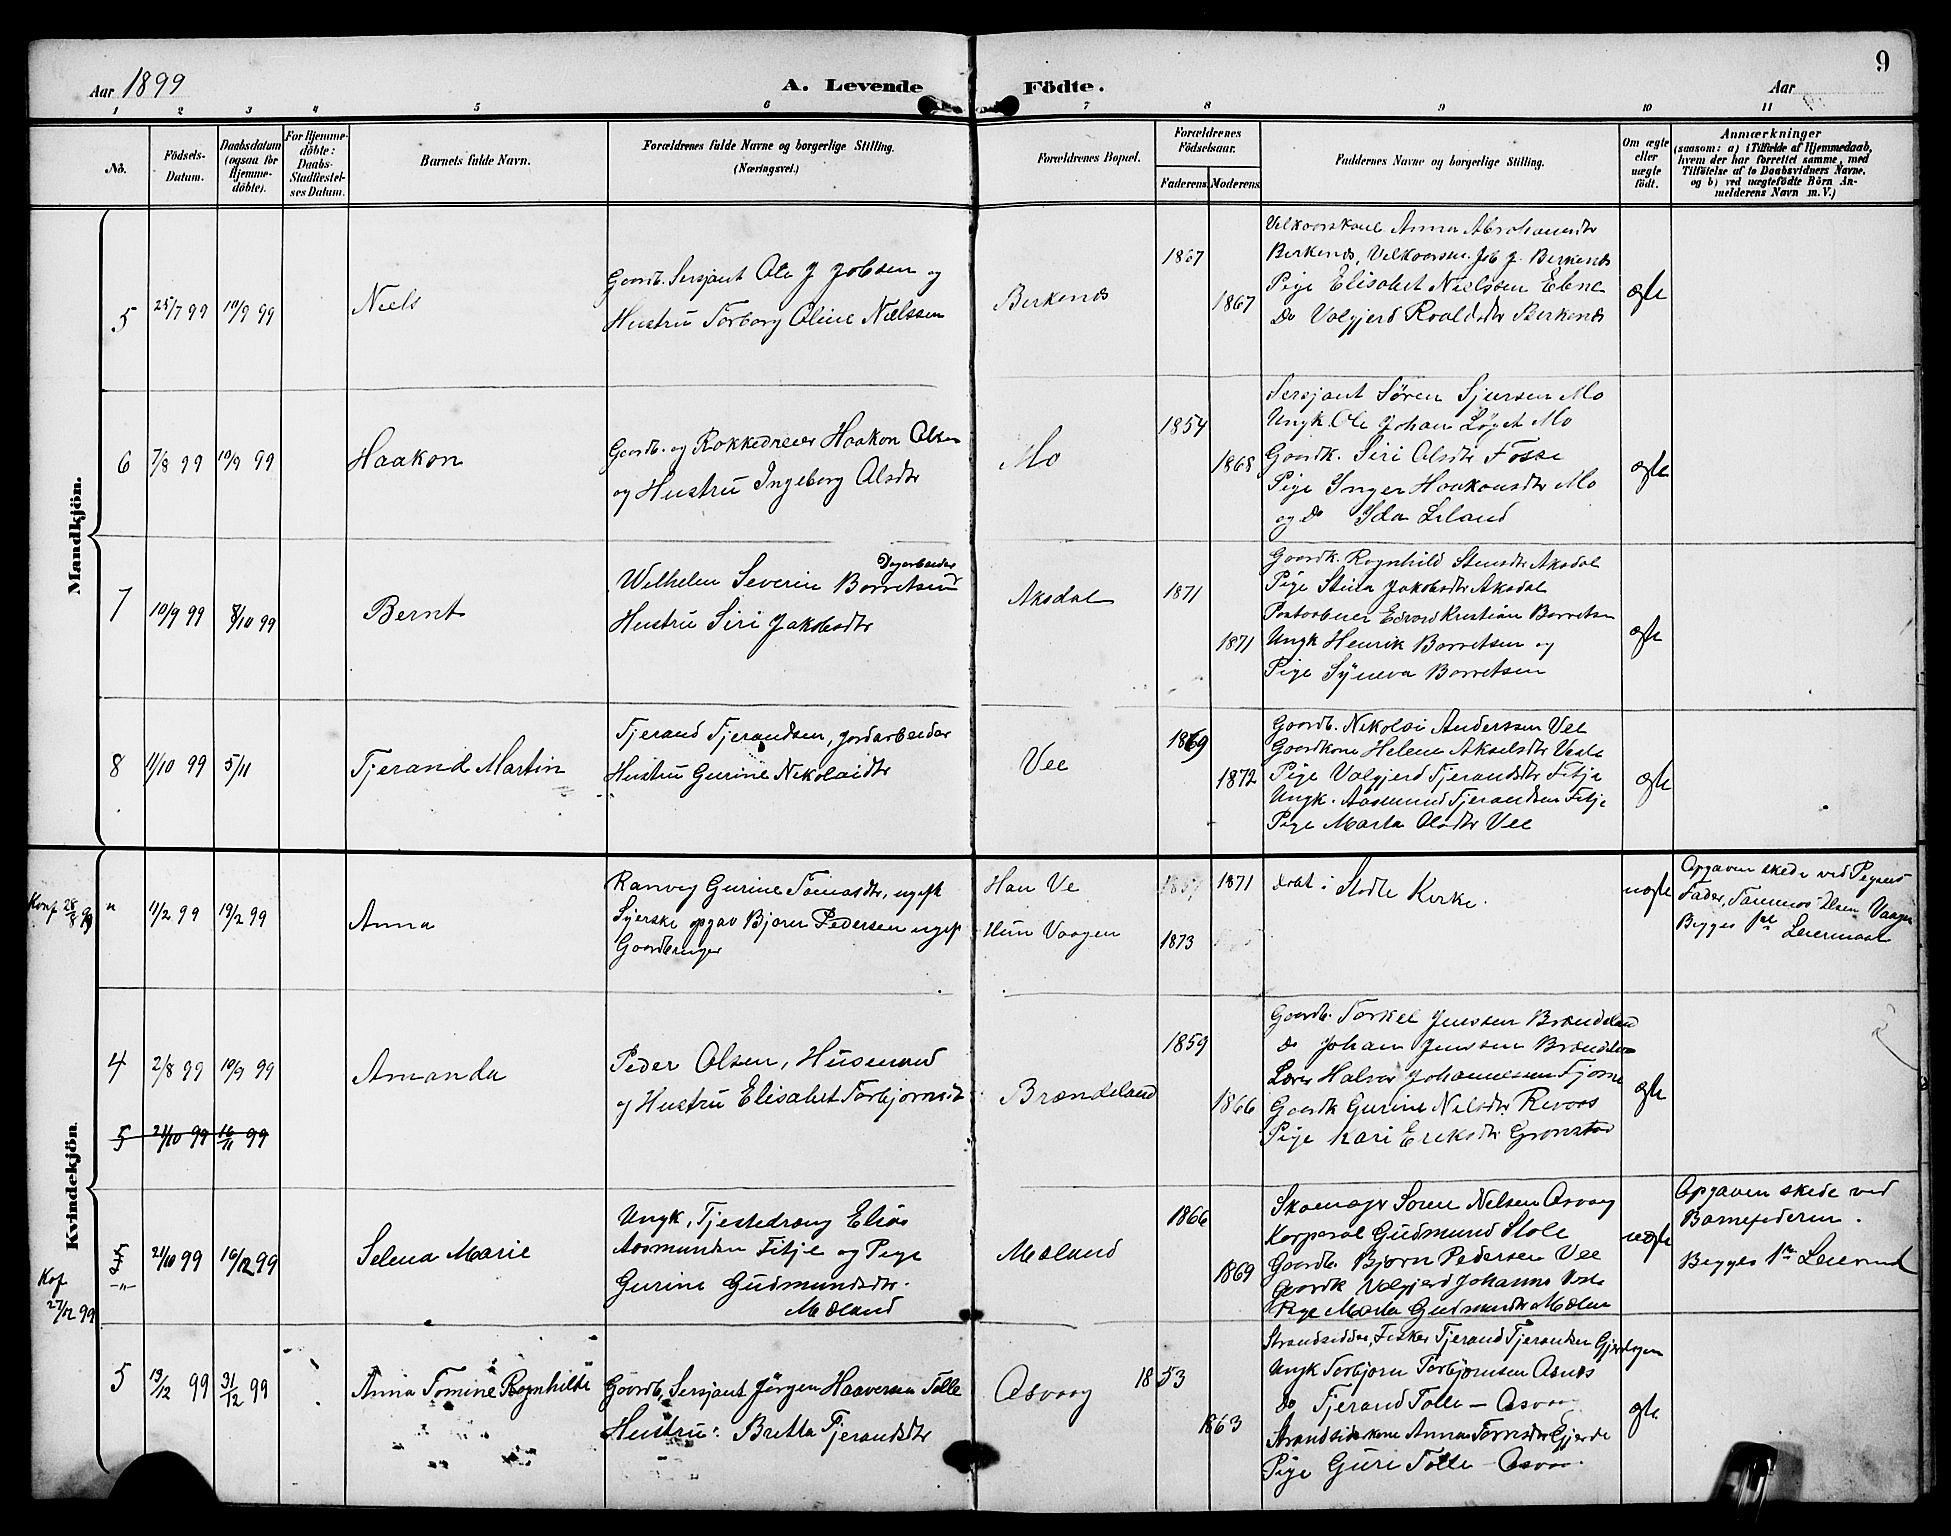 9
Aar 1899
A. Levende Födte.
Aar
1 2 3 4 5 6 7 8 9 10 11
No.
Födsels-Datum.
Daabsdatum (ogsaa for Hjemme-döbte).
For Hjemme-döbte: Daabs-Stadfæstel-ses Datum.
Barnets fulde Navn.
Forældrenes fulde Navne og borgerlige Stilling.
(Næringsvei.)
Forældrenes Bopæl.
Forældrenes Födselsaar.
Faderens. Moderens.
Faddernes Navne og borgerlige Stilling.
Om ægte eller uægte födt.
Anmærkninger
(saasom: a) i Tilfælde af Hjemmedaab,
hvem der har forrettet samme, med
Tilföielse af to Daabsvidners Navne,
og b) ved uægtefödte Börn An-
melderens Navn m. V.)
Mandkjön.
5 25/7 99 10/9 99 Niels
Gaardb. Sersjant Ole J Jobsen og
Hustru Torborg Oline Nielssen
Berkenes
1867
1867
Velkaarskone Anna Abrahamsdtr
Berkenes, Velkaarsm. Job J. Berkenes
Pige Elisabet Nielssen Ebne
Do Valgjerd Roaldsdtr Berkenes
ægte
6 7/8 99 10/9 99 Haakon
Gaardb. og Rokkedreier Haakon Olsen
og Hustru Ingeborg Olsdtr
Mo
1854
1868
Sersjant Sören Sjursen Mo
Ungk. Ole Johan Mo
Gaardk. Siri Olsdtr Fosse
Pige Inger Haakonsdtr Mo
og Do Ida Leland
ægte
7 10/9 99 8/10 99 Bernt
Dagarbeider
Wilhelm Severin Borretsen
Hustru Siri Jakobsdtr
Aksdal
1871
1871
Gaardk. Ragnhild Stensdtr Aksdal
Pige Stina Jakobsdtr Aksdal
Postaabner Edvard Kristian Borretsen
Ungk Henrik Borretsen og
Pige Syneva Borretsen
ægte
8 11/10 99 5/11 Tjerand Martin
Tjerand Tjerandsen, jordarbeider
Hustru Gurine Nikolaidtr
Vee
1869
1872
Gaardb. Nikolai Anderssen Vee
Gaardkone Helene Akselsdtr
Pige Valgjerd Tjerandsdtr Fitje
Ungk. Aasmund Tjerandsen Fitje
Pige Marta Olsdtr Vee
ægte
Kvindekjön.
Konf 28/8 99
" 11/2 99 19/2 99 Anna
Ranveg Gurine Tomasdtr, ugift
Syerske opgav Bjorn Pedersen ugift
Gaardbruger
Han Ve
Hun Vaagen
1871
1873
döbt i Stodle Kirke.
uægte
Opgaven skede ved Pigens
Fader, Tommas Vaagen
Begges 1ste Leiermaal
4 2/8 99 10/9 99 Amanda
Peder Olsen, Husmand
og Hustru Elisabet Torbjornsdt.
Brændeland
1859
1866
Gaardb. Torkel Jenssen Brændeland
Do Johan Jenssen Brændeland
Lærer Halvor Johannessen Fjosne
Gaardk Gurine Nelsdtr. Revaas
Pige Kari Eriksdtr Gronstad
ægte
5 21/10 99 16/11 99
Kof 27/12 99
-"- 21/10 99 10/12 99 Selena Marie
Ungk, Tjestedreng Elias
Aasmundsen Fitje og Pige
Gurine Gudmundsdtr.
Mæland
Mæland
1866
1869
Skomager Soren Nelsen Osvaag
Korporal Gudmund Stole
Gaardb. Bjorn Pedersen Vee
Gaardk Valgjerd Johanns
Pige Marta Gudmundsdtr Mælan
uægte
Opgaven skede ved
Barnefaderen.
Begges 1ste
5 13/12 99 31/12 99 Anna Tomine Ragnhilde
Gaardb, Sersjant Jörgen Haaversen Tolle
Hustru: Britta Tjerandsdtr
Osvaag
1853
1863
Strandsidder, Fisker Tjerand Tjerandsen
Ungk Torbjorn Torbjornsen Osnes
Do Tjerand Tolle – Osvaag
Strandsidderkone Anna Gjerde
Pige Guri Tolle – Osvaag
ægte